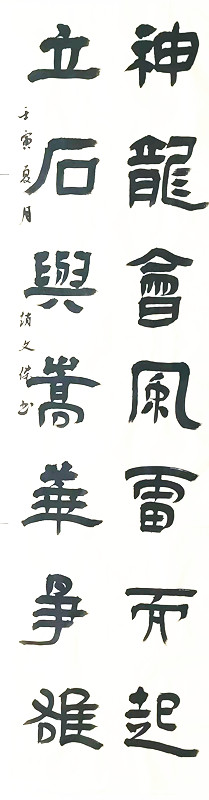 神龍會風雷而起
立石與嵩華爭雄
壬寅夏月 文傑書